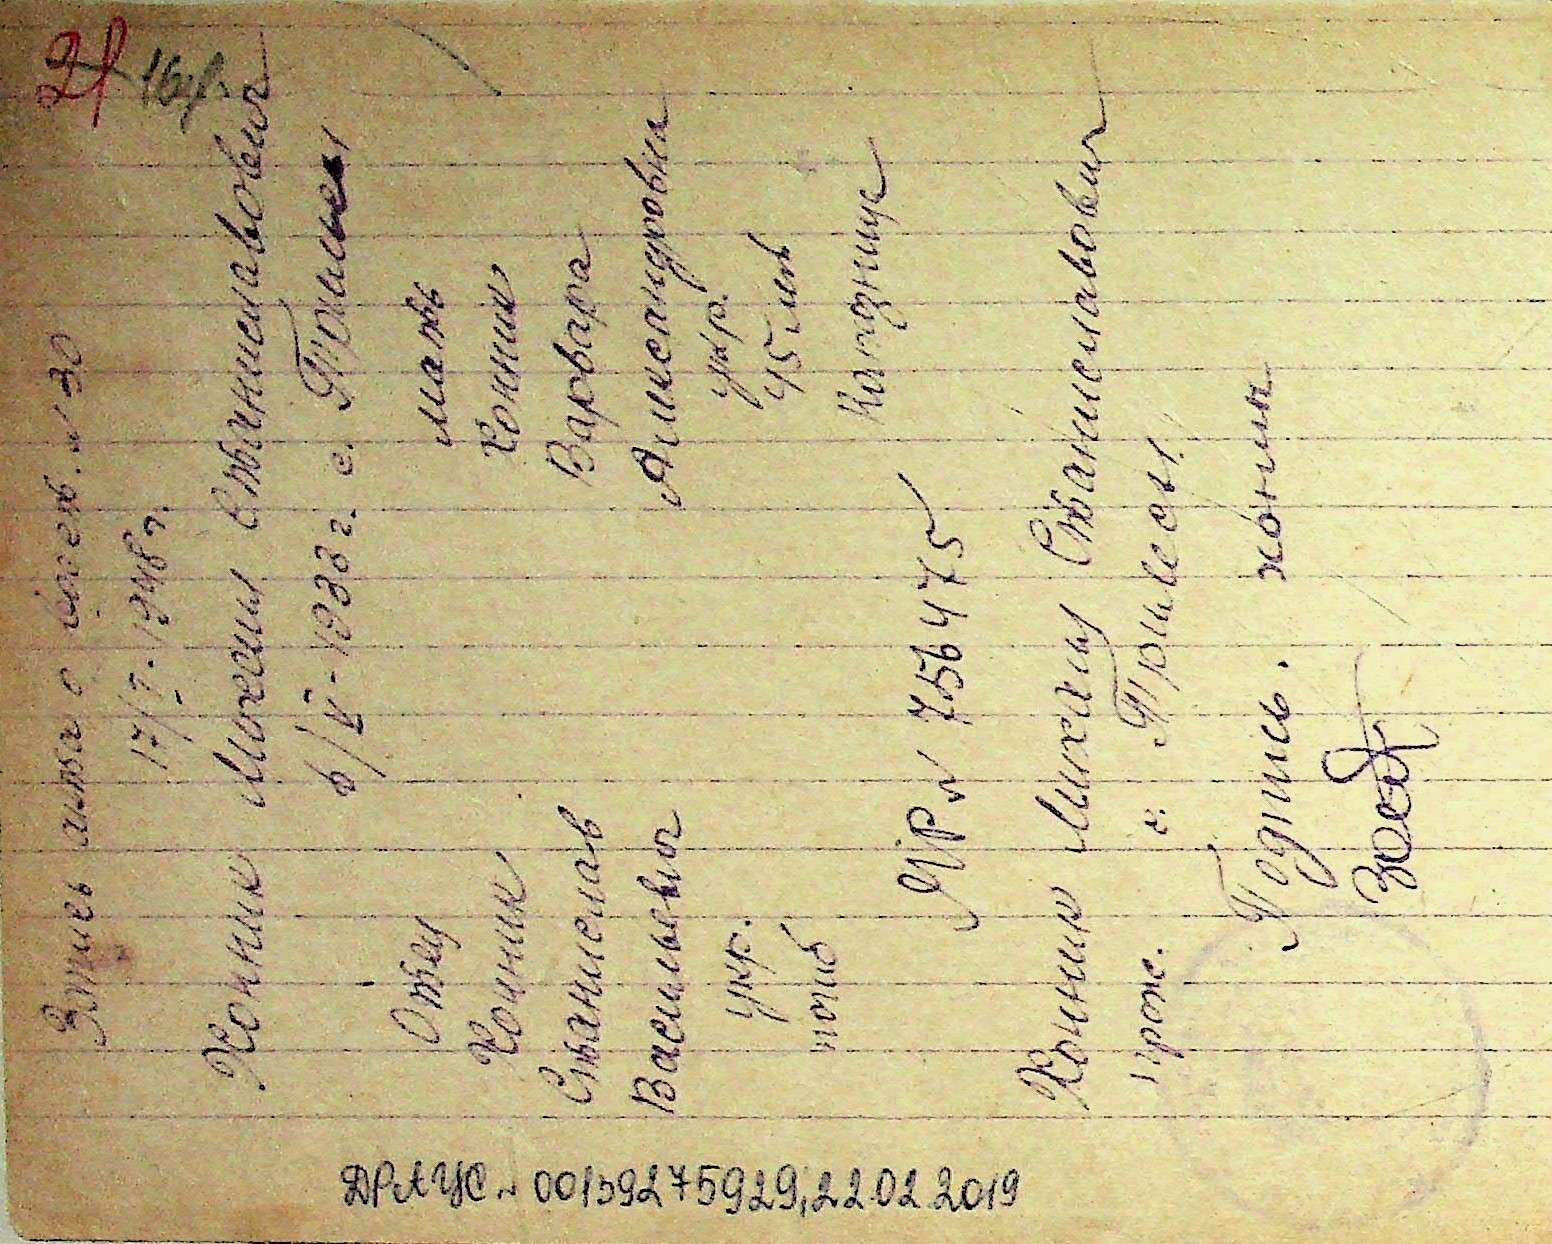 21
Запись акта о восст. № 30
17/I-1948 г.
Хонник Михаил Станиславович
6/V-1933 г. с. Трилесы
Отец
Хонник
Станислав
Васильевич
укр.
погиб
мать
Хонник
Варвара
Александровна
укр.
45 лет
Колхознице
ЯР № 7564475
Хонник Михаил Станиславович
прож. с. Трилесы
Подпись. Хонник
ДРАЦС № 00139275929, 22.02.2019